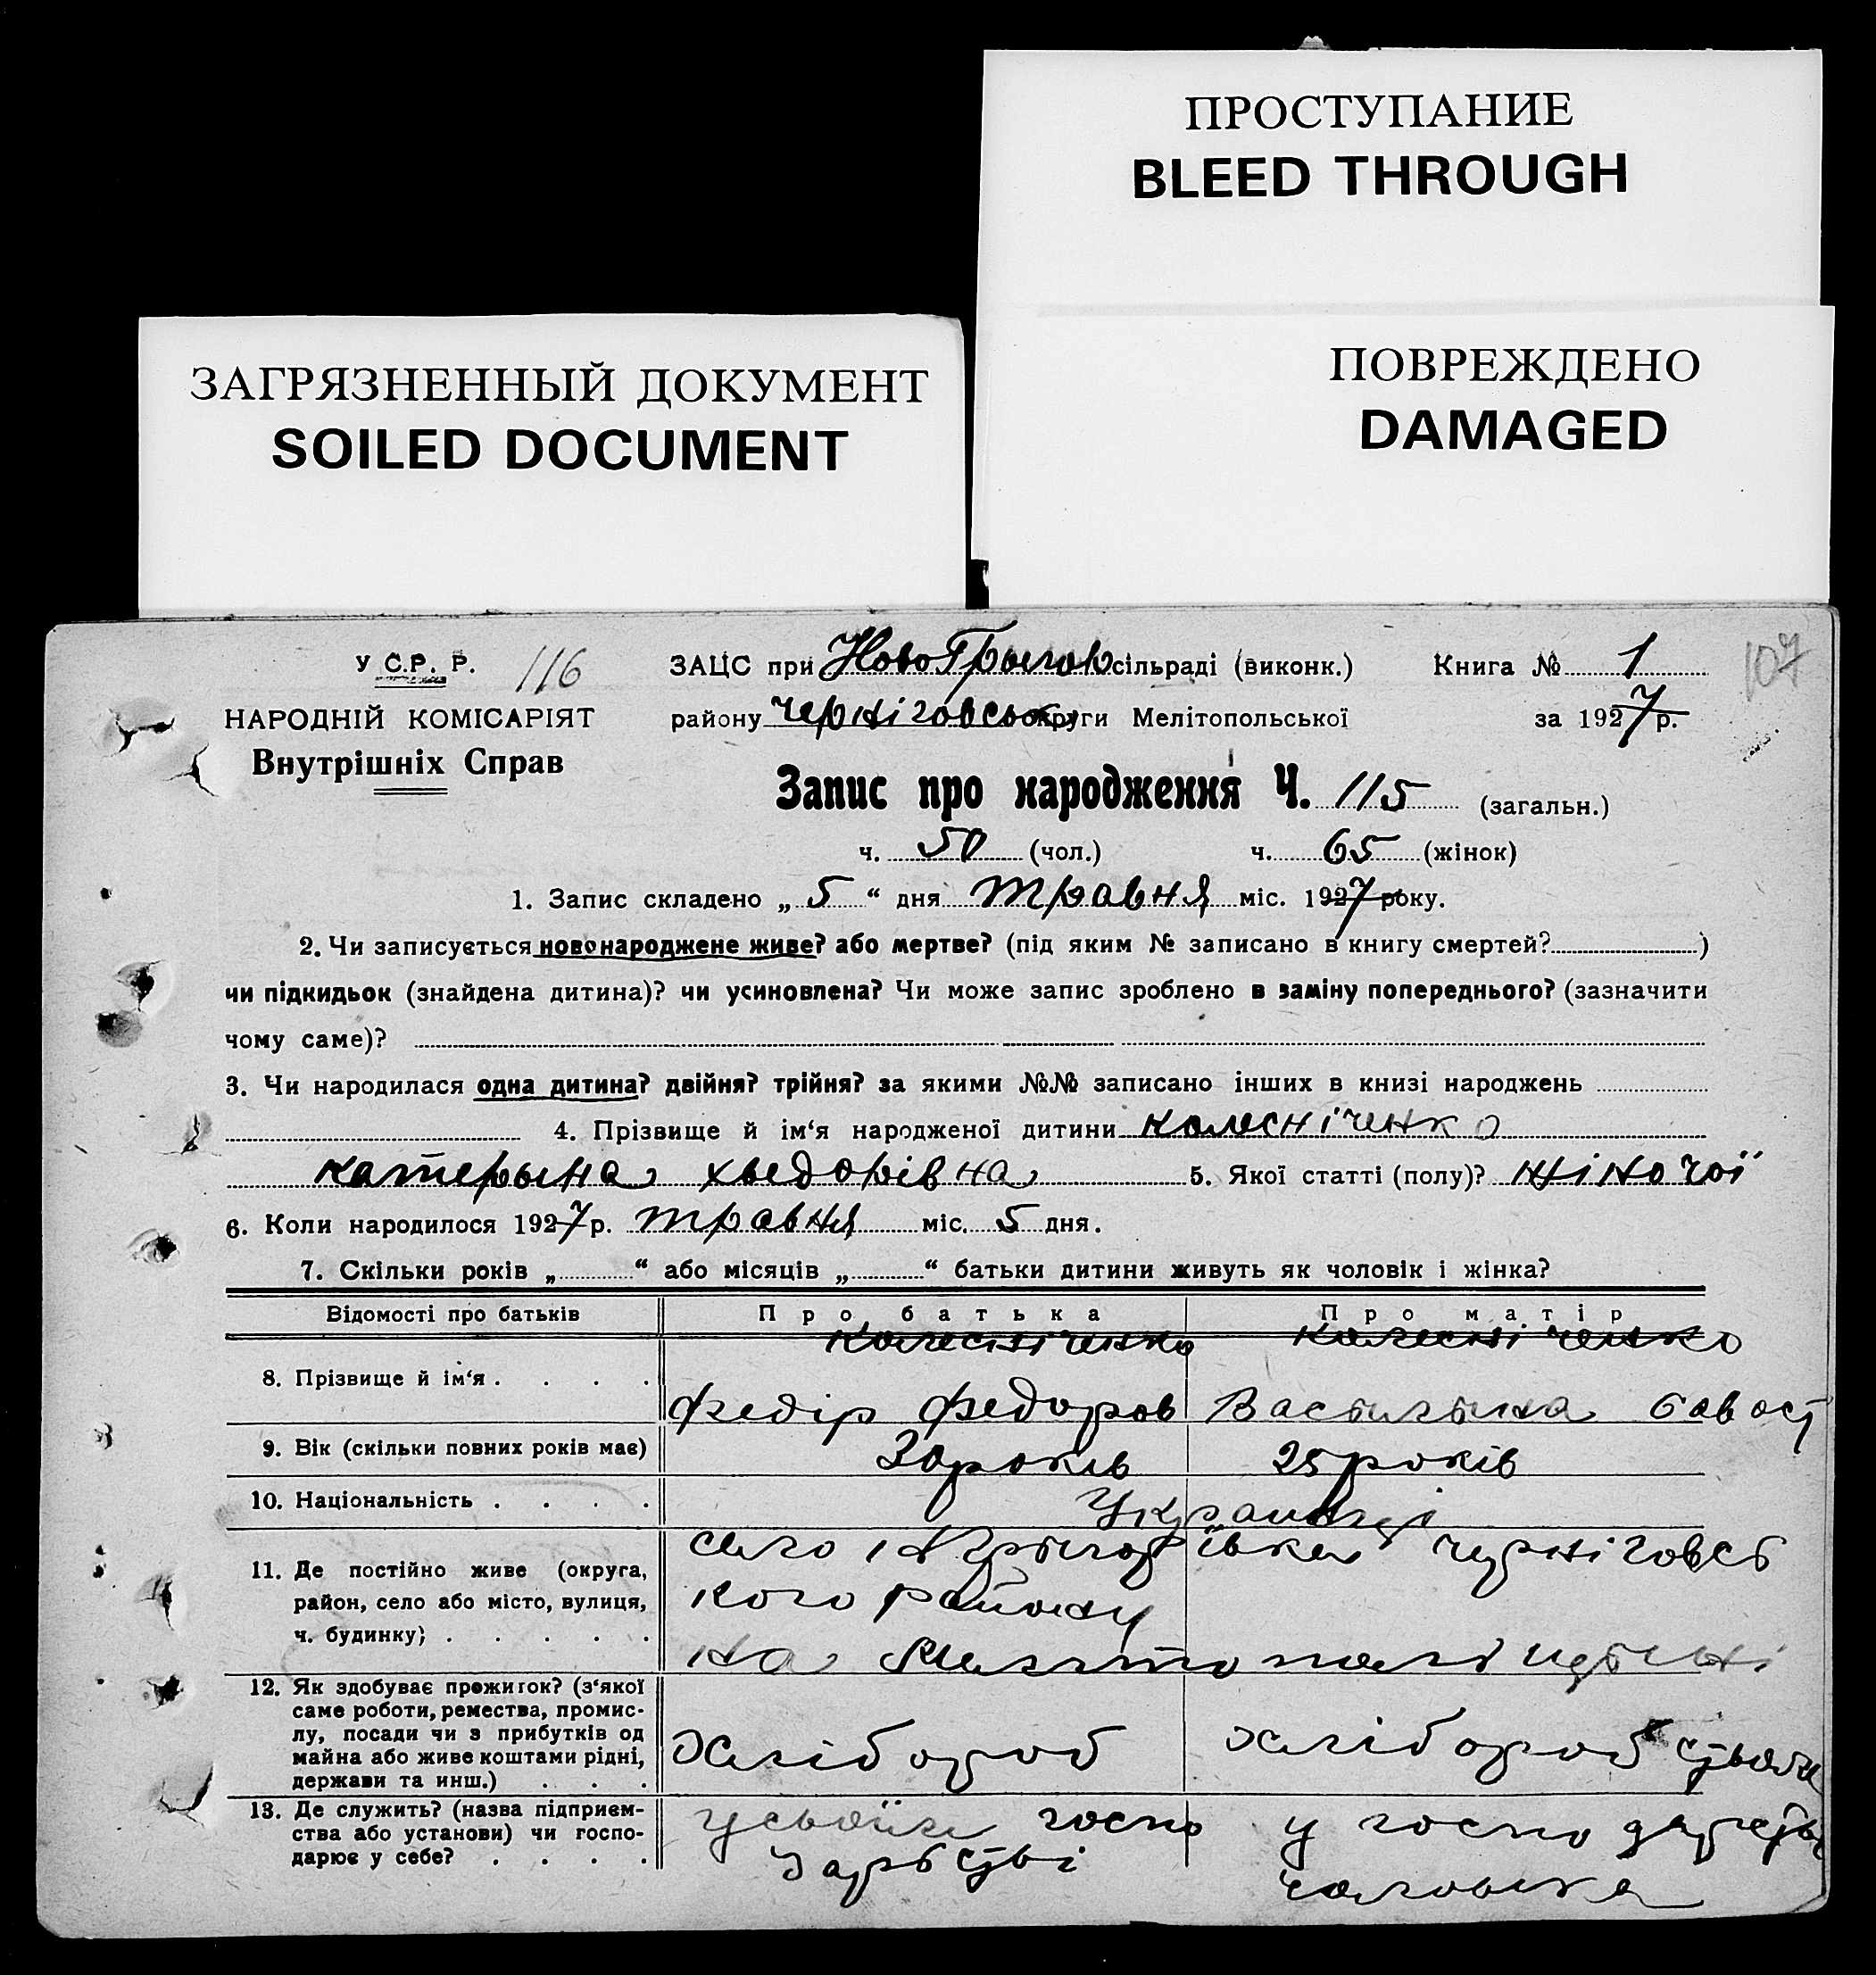 ПРОСТУПАНИЕ
BLEED THROUGH
ЗАГРЯЗНЕННЫЙ ДОКУМЕНТ
SOILED DOCUMENT
ПОВРЕЖДЕНО
DAMAGED
У С.Р. Р. 116
НАРОДНІЙ КОМІСАРІЯТ
Внутрішніх Справ
ЗАЦС при НовоГрыгор сільраді (виконк.) Книга № 1 107
району Черніговськ округи Мелітопольської за 1927 р.
Запис про народження Ч. 115 (загальн.)
ч. 50 (чол.) ч. 65 (жінок)
1. Запис складено „ 5 “ дня травня міс. 1927 року.
2. Чи записується новонароджене живе? або мертве? (під яким № записано в книгу смертей? )
чи підкидьок (знайдена дитина)? чи усиновлена? Чи може запис зроблено в заміну попереднього? (зазначити
чому саме)?
3. Чи народилася одна дитина? двійня? трійня? за якими №№ записано інших в книзі народжень
4. Прізвище й ім‘я народженої дитини колесніченко
катерына хведорівна 5. Якої статті (полу)? жіночої
6. Коли народилося 1927 р. травня міс. 5 дня.
7. Скільки років „ “ або місяців „ “ батьки дитини живуть як чоловік і жінка?
Відомості про батьків Про батька Про матір
колесніченко колесніченко
8. Прізвище й ім‘я . . . . Федір Федоров Васылына Савост
9. Вік (скільки повних років має) 30 років 25 років
10. Національність . . . . Українці
11. Де постійно живе (округа, село Н Грыгорівка черніговсь
район, село або місто, вулиця, кого району
ч. будинку) . . . . . на Мелітопольщыні
12. Як здобуває прожиток? (з‘якої
саме роботи, ремества, промис-
лу, посади чи з прибутків од
майна або живе коштами рідні, хлібороб хлібороб
держави та инш.) . . .
13. Де служить? (назва підприєм- усвоїм госпо у господарств
ства або установи) чи госпо- дарстві
дарює у себе? . . . . чоловіка